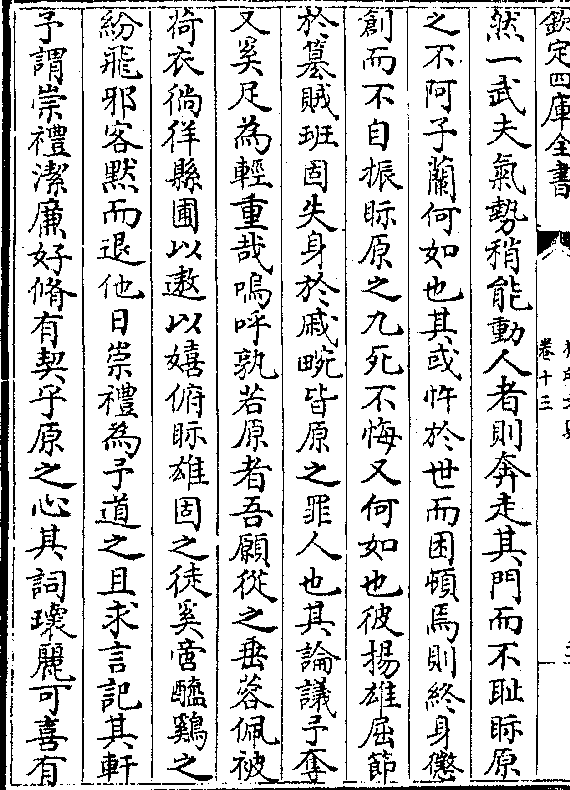 欽定四庫全書
卷十三
然一武夫氣勢稍能動人者則奔走其門而不耻眎原
之不阿子蘭何如也其或忤於世而困頓焉則終身懲
創而不自振眎原之九死不悔又何如也彼揚雄屈節
於篡賊班固失身於戚畹皆原之罪人也其論議予奪
又奚足為輕重哉嗚呼孰若原者吾願從之垂蓉佩被
荷衣徜徉縣圃以遨以嬉俯眎雄固之徒奚啻醯鷄之
紛飛邪客黙而退他日崇禮為予道之且求言記其軒
予謂崇禮潔廉好脩有契乎原之心其詞瓌麗可喜有